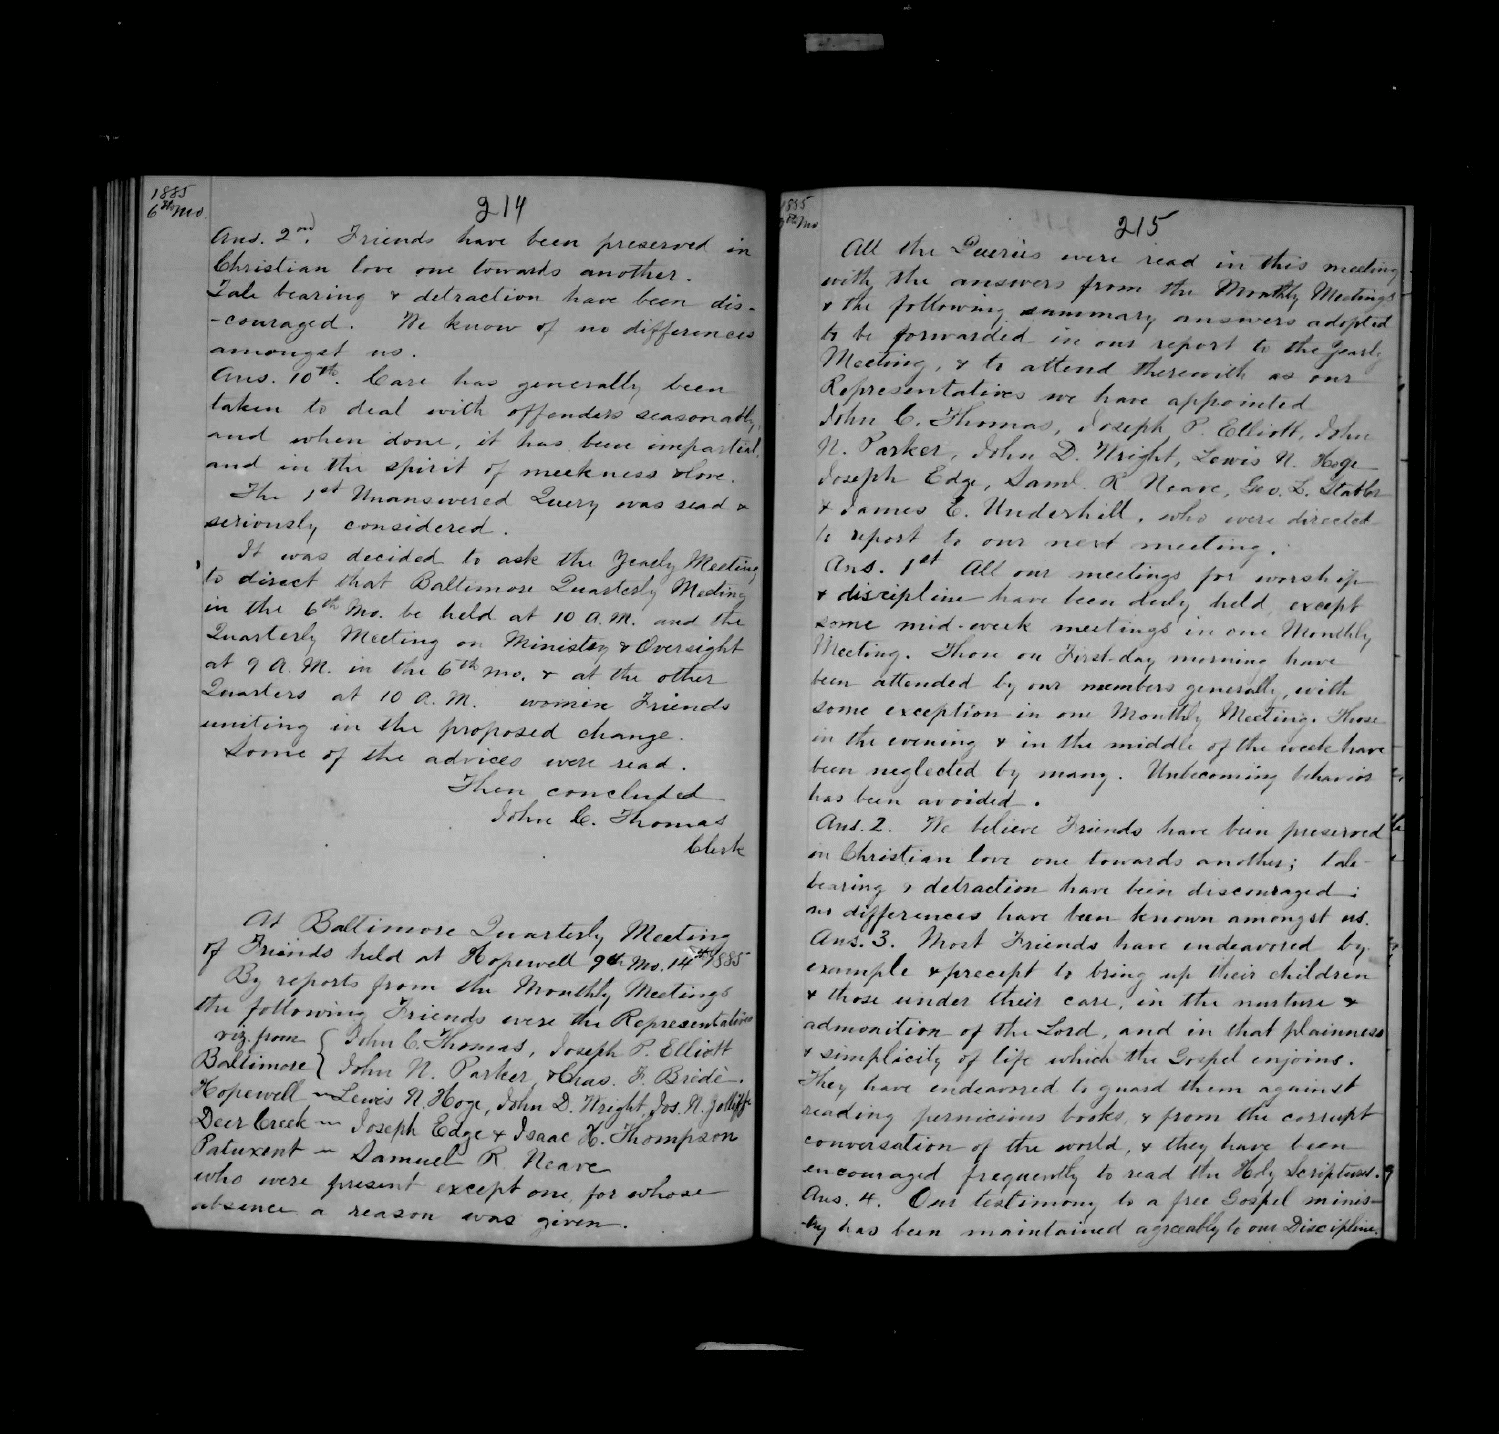 1885
6th Mo.
214
Ans. 2nd. Friends have been preserved in
Christian love one towards another.
Tale bearing & detraction have been dis-
-couraged. We know of no differences
amongst us.
Ans. 10th. Care has generally been
taken to deal with offenders seasonably,
and when done, it has been impartial,
and in the spirit of meekness & love.
The 1st Unanswered Query was read &
seriously considered.
It was decided to ask the Yearly Meeting
to direct that Baltimore Quarterly Meeting
in the 6th Mo. be held at 10 A.M. and the
Quarterly Meeting on Ministry & Oversight
at 9 A.M. in the 6th mo. & at the other
Quarters at 10 A.M. women Friends
uniting in the proposed change.
Some of the advices were read.
Then concluded
John C. Thomas
Clerk
At Baltimore Quarterly Meeting
of Friends held at Hopewell 9th Mo. 14th 1885
By reports from the Monthly Meetings
the following Friends were the Representatives
viz. from { John C. Thomas, Joseph P. Elliott
Baltimore } John N. Parker, & Chas. F. Bridé.
Hopewell — Lewis N. Hoge, John D. Wright, Jos. N. Jolliffe
Deer Creek — Joseph Edge & Isaac H. Thompson
Patuxent — Samuel R. Neave
who were present except one, for whose
absence a reason was given.
1885
9th Mo
215
All the Queries were read in this meeting
with the answers from the Monthly Meetings
& the following summary answers adopted
to be forwarded in our report to the Yearly
Meeting, & to attend therewith as our
Representatives we have appointed
John C. Thomas, Joseph P. Elliott, John
N. Parker, John D. Wright, Lewis N. Hoge
Joseph Edge, Saml. R. Neave, Geo. L. Stabler
& James E. Underhill, who were directed
to report to our next meeting.
Ans. 1st All our meetings for worship
& discipline have been duly held, except
some mid-week meetings in one Monthly
Meeting. Those on First-day morning have
been attended by our members generally, with
some exception in one Monthly Meeting. Those
in the evening & in the middle of the week have
been neglected by many. Unbecoming behavior
has been avoided.
Ans. 2. We believe Friends have been preserved
in Christian love one towards another; tale-
bearing & detraction have been discouraged:
no differences have been known amongst us.
Ans. 3. Most Friends have endeavored by
example & precept to bring up their children
& those under their care, in the nurture &
admonition of the Lord, and in that plainness
& simplicity of life which the Gospel enjoins.
They have endeavored to guard them against
reading pernicious books, & from the corrupt
conversation of the world, & they have been
encouraged frequently to read the Holy Scriptures.
Ans. 4. Our testimony to a free Gospel minis-
-try has been maintained agreeably to our Discipline.